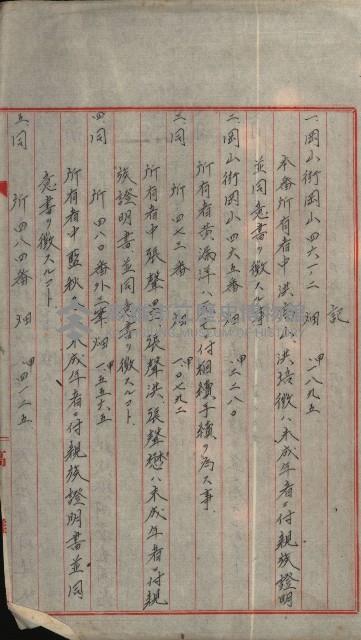 記
一、岡山街岡山四六一ノ二 畑 甲、一八九五
本番所有者中 洪 洪培徴ハ未成年者ニ付親族證明
並同意書ヲ徴スル事
二、岡山街岡山四六五番 畑 甲二二八〇
所有者黄漏洋ハ死亡ニ付相續手續ヲ為ス事
三、同 所 四七三番 畑 甲一、〇七九二
所有者中 張聲 張聲洪 張聲懋ハ未成年者ニ付親
族證明書並同意書ヲ徴スルコト
四、同 所 四八〇番外二筆 畑 甲一五五六五
所有者中 藍秋 ハ未成年者ニ付親族證明書並同
意書ヲ徴スルコト
五、同 所 四八四番 畑 甲四一二五
高雄